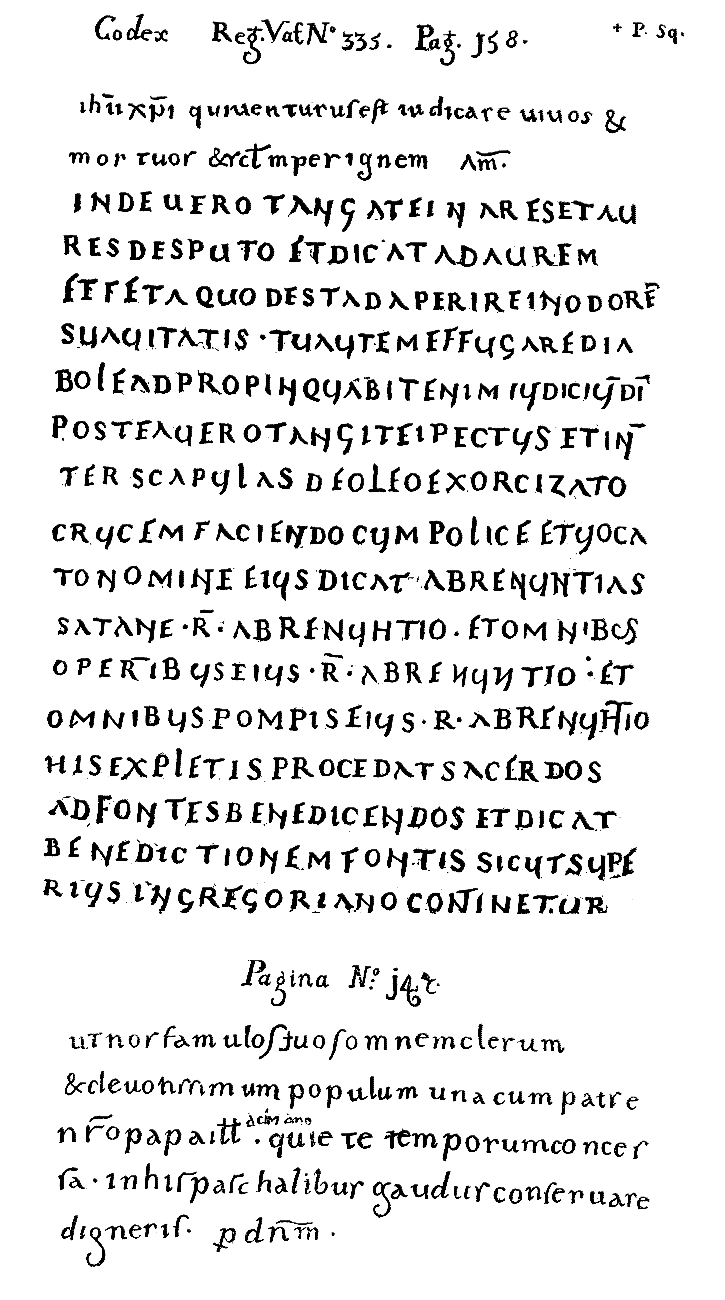 Codex Reg. Vat N° 335. Pag. 158. + P. Sq.
ihu̅ xp̅i quiuenturusest iudicare uiuos &
mortuos &sct̅mperignem Am̅.
INDE UERO TANGAT EI NARESETAU
RES DESPUTO ETDICAT ADAUREM
ETFETA QUO DESTADAPERIREINODORE̅
SUAUITATIS · TUAUTEM EFFUGAREDIA
BOLEADPROPINQUABITENIM IUDICIU̅DI̅
POSTEAUEROTANGITEIPECTUS ETIN̅
TER SCAPULAS DEOLEOEXORCIZATO
CRUCEM FACIENDO CUM POLICE ETUOCA
TO NOMINE EIUS DICAT ABRENUNTIAS
SATANE · R̅ · ABRENUNTIO · ETOMNIBUS
OPERIBUSEIUS · R̅ · ABRENUNTIO · ET
OMNIBUSPOMPISEIUS · R · ABRENUNTIO
HISEXPLETIS PROCEDAT SACERDOS
ADFONTESBENEDICENDOS ETDICAT
BENEDICTIONEM FONTIS SICUTSUPE
RIUS INGREGORIANO CONTINETUR
Pagina N.°
utnosfamulostuosomnemclerum
&deuotissimum populum unacum patre
nr̅opapa itt · quiete temporumconces
sa · inhispaschalibus gaudiisconseruare
digneris · p dnm̅ ·